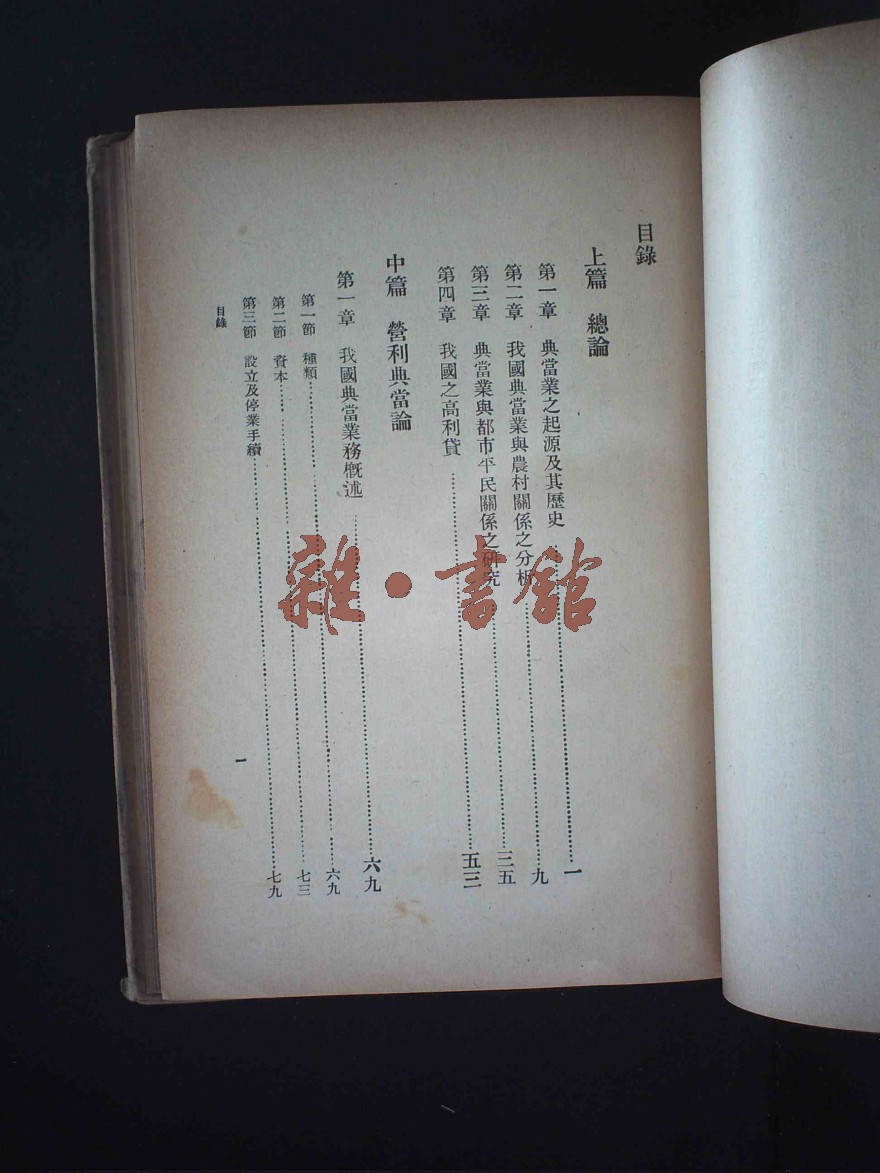 目錄
上篇　總論
第一章　典當業之起源及其歷史……一
第二章　我國典當業與農村關係之分析……九
第三章　典當業與都市平民關係之研究……三五
第四章　我國之高利貸……五三
中篇　營利典當論
第一章　我國典當業務概述……六九
第一節　種類……六九
第二節　資本……七三
第三節　設立及停業手續……七九
目錄
一
雜·書館